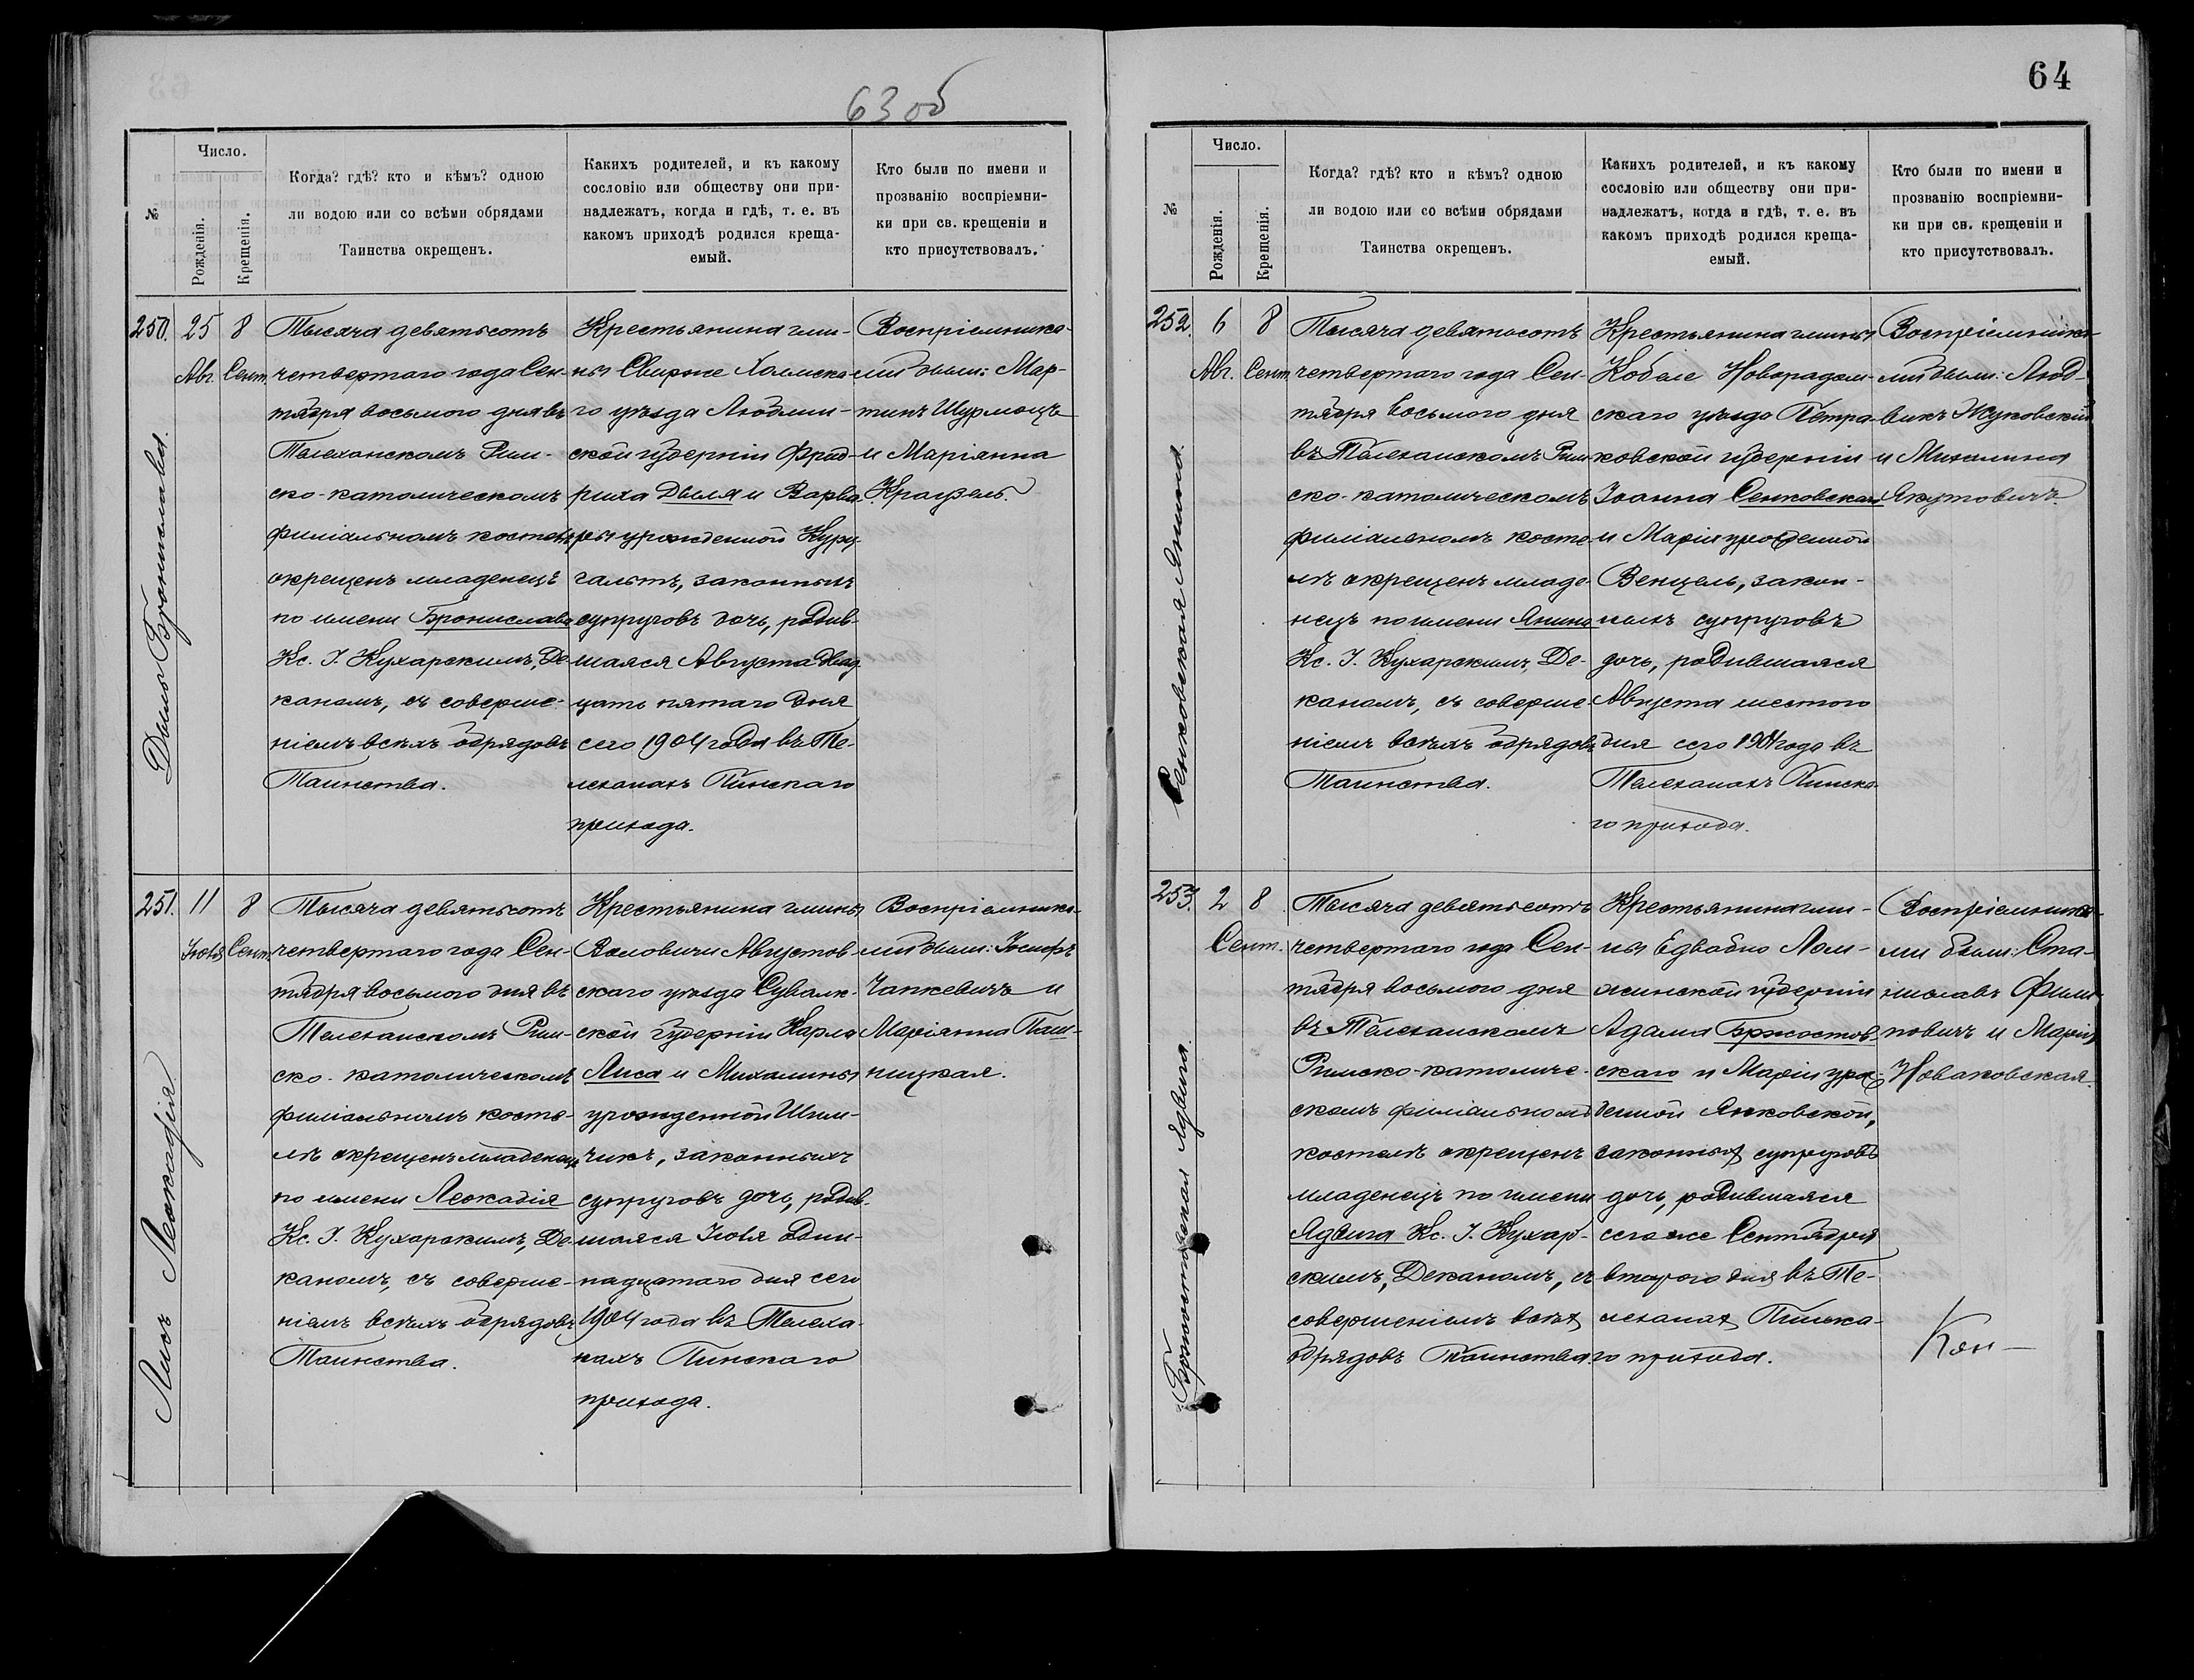 63 об
№
Число.
Рожденія.
Крещенія.
Когда? гдѣ? кто и кѣмъ? одною
ли водою или со всѣми обрядами
Таинства окрещенъ.
Какихъ родителей, и къ какому
сословію или обществу они при-
надлежатъ, когда и гдѣ, т. е. въ
какомъ приходѣ родился креща-
емый.
Кто были по имени и
прозванію воспріемни-
ки при св. крещеніи и
кто присутствовалъ.
250.
Дыль Бронислава.
25
Авг.
8
Сент.
Тысяча девятьсотъ
четвертаго года Сен-
тября восьмого дня въ
Телеханскомъ Рим-
ско-католическомъ
филіальномъ костелѣ
окрещенъ младенецъ
по имени Бронислава
Кс. І. Кухарскимъ, Де-
каномъ, съ соверше-
ніемъ всѣхъ обрядовъ
Таинства.
Крестьянина гми-
ны Свирже Холмска-
го уѣзда Люблин-
ской губерніи Фрид-
риха Дыля и Варва-
ры урожденной
законныхъ
супруговъ дочь, родив-
шаяся Августа двад-
цать пятаго дня
сего 1904 года въ Те-
леханахъ Пинскаго
прихода.
Воспріемника-
ми были: Мар-
тинъ Шурмоцъ
и Маріянна
Краузель.
251.
Лисъ Леокадія
11
Іюля
8
Сент.
Тысяча девятьсотъ
четвертаго года Сен-
тября восьмого дня въ
Телеханскомъ Рим-
ско-католическомъ
филіальномъ косте-
лѣ окрещенъ младенецъ
по имени Леокадія
Кс. І. Кухарскимъ, Де-
каномъ, съ соверше-
ніемъ всѣхъ обрядовъ
Таинства.
Крестьянина гмины
Воловичи Августов-
скаго уѣзда Сувалк-
ской губерніи Карла
Лиса и Михалины
урожденной Шим-
чикъ, законныхъ
супруговъ дочь, родив-
шаяся Іюля один-
надцатаго дня сего
1904 года въ Телеха-
нахъ Пинскаго
прихода.
Воспріемника-
ми были: Іосифъ
Чапкевичъ и
Маріянна Паш-
ницкая.
64
№
Число.
Рожденія.
Крещенія.
Когда? гдѣ? кто и кѣмъ? одною
ли водою или со всѣми обрядами
Таинства окрещенъ.
Какихъ родителей, и къ какому
сословію или обществу они при-
надлежатъ, когда и гдѣ, т. е. въ
какомъ приходѣ родился креща-
емый.
Кто были по имени и
прозванію воспріемни-
ки при св. крещеніи и
кто присутствовалъ.
252.
Сенковская Янина.
6
Авг.
8
Сент.
Тысяча девятьсотъ
четвертаго года Сен-
тября восьмого дня
въ Телеханскомъ Рим-
ско-католическомъ
филіальномъ косте-
лѣ окрещенъ младе-
нецъ по имени Янина
Кс. І. Кухарскимъ, Де-
каномъ, съ соверше-
ніемъ всѣхъ обрядовъ
Таинства.
Крестьянина гмины
Кобеле Новорадом-
скаго уѣзда Петра-
ковской губерніи
Іоанна Сенковскаго
и Маріи урожденной
Венцель, закон-
ныхъ супруговъ
дочь, родившаяся
Августа шестого
дня сего 1904 года въ
Телеханахъ Пинска-
го прихода.
Воспріемника-
ми были: Люд-
викъ Жуковскій
и Михалина
Якутовичъ.
253.
Бржостовская Ядвига.
2
Сент.
8
Тысяча девятьсотъ
четвертаго года Сен-
тября восьмого дня
въ Телеханскомъ
Римско-католиче-
скомъ филіальномъ
костелѣ окрещенъ
младенецъ по имени
Ядвига Кс. І. Кухар-
скимъ, Деканомъ, съ
совершеніемъ всѣхъ
обрядовъ Таинства
Крестьянина гми-
ны Едвабно Лом-
жинской губерніи
Адама Бржостов-
скаго и Маріи урож-
денной Янковской,
законныхъ супруговъ
дочь, родившаяся
сего же Сентября
второго дня въ Те-
леханахъ Пинска-
го прихода.
Воспріемника-
ми были: Ста-
ниславъ Филип-
повичъ и Марія
Новаковская.
Кон-